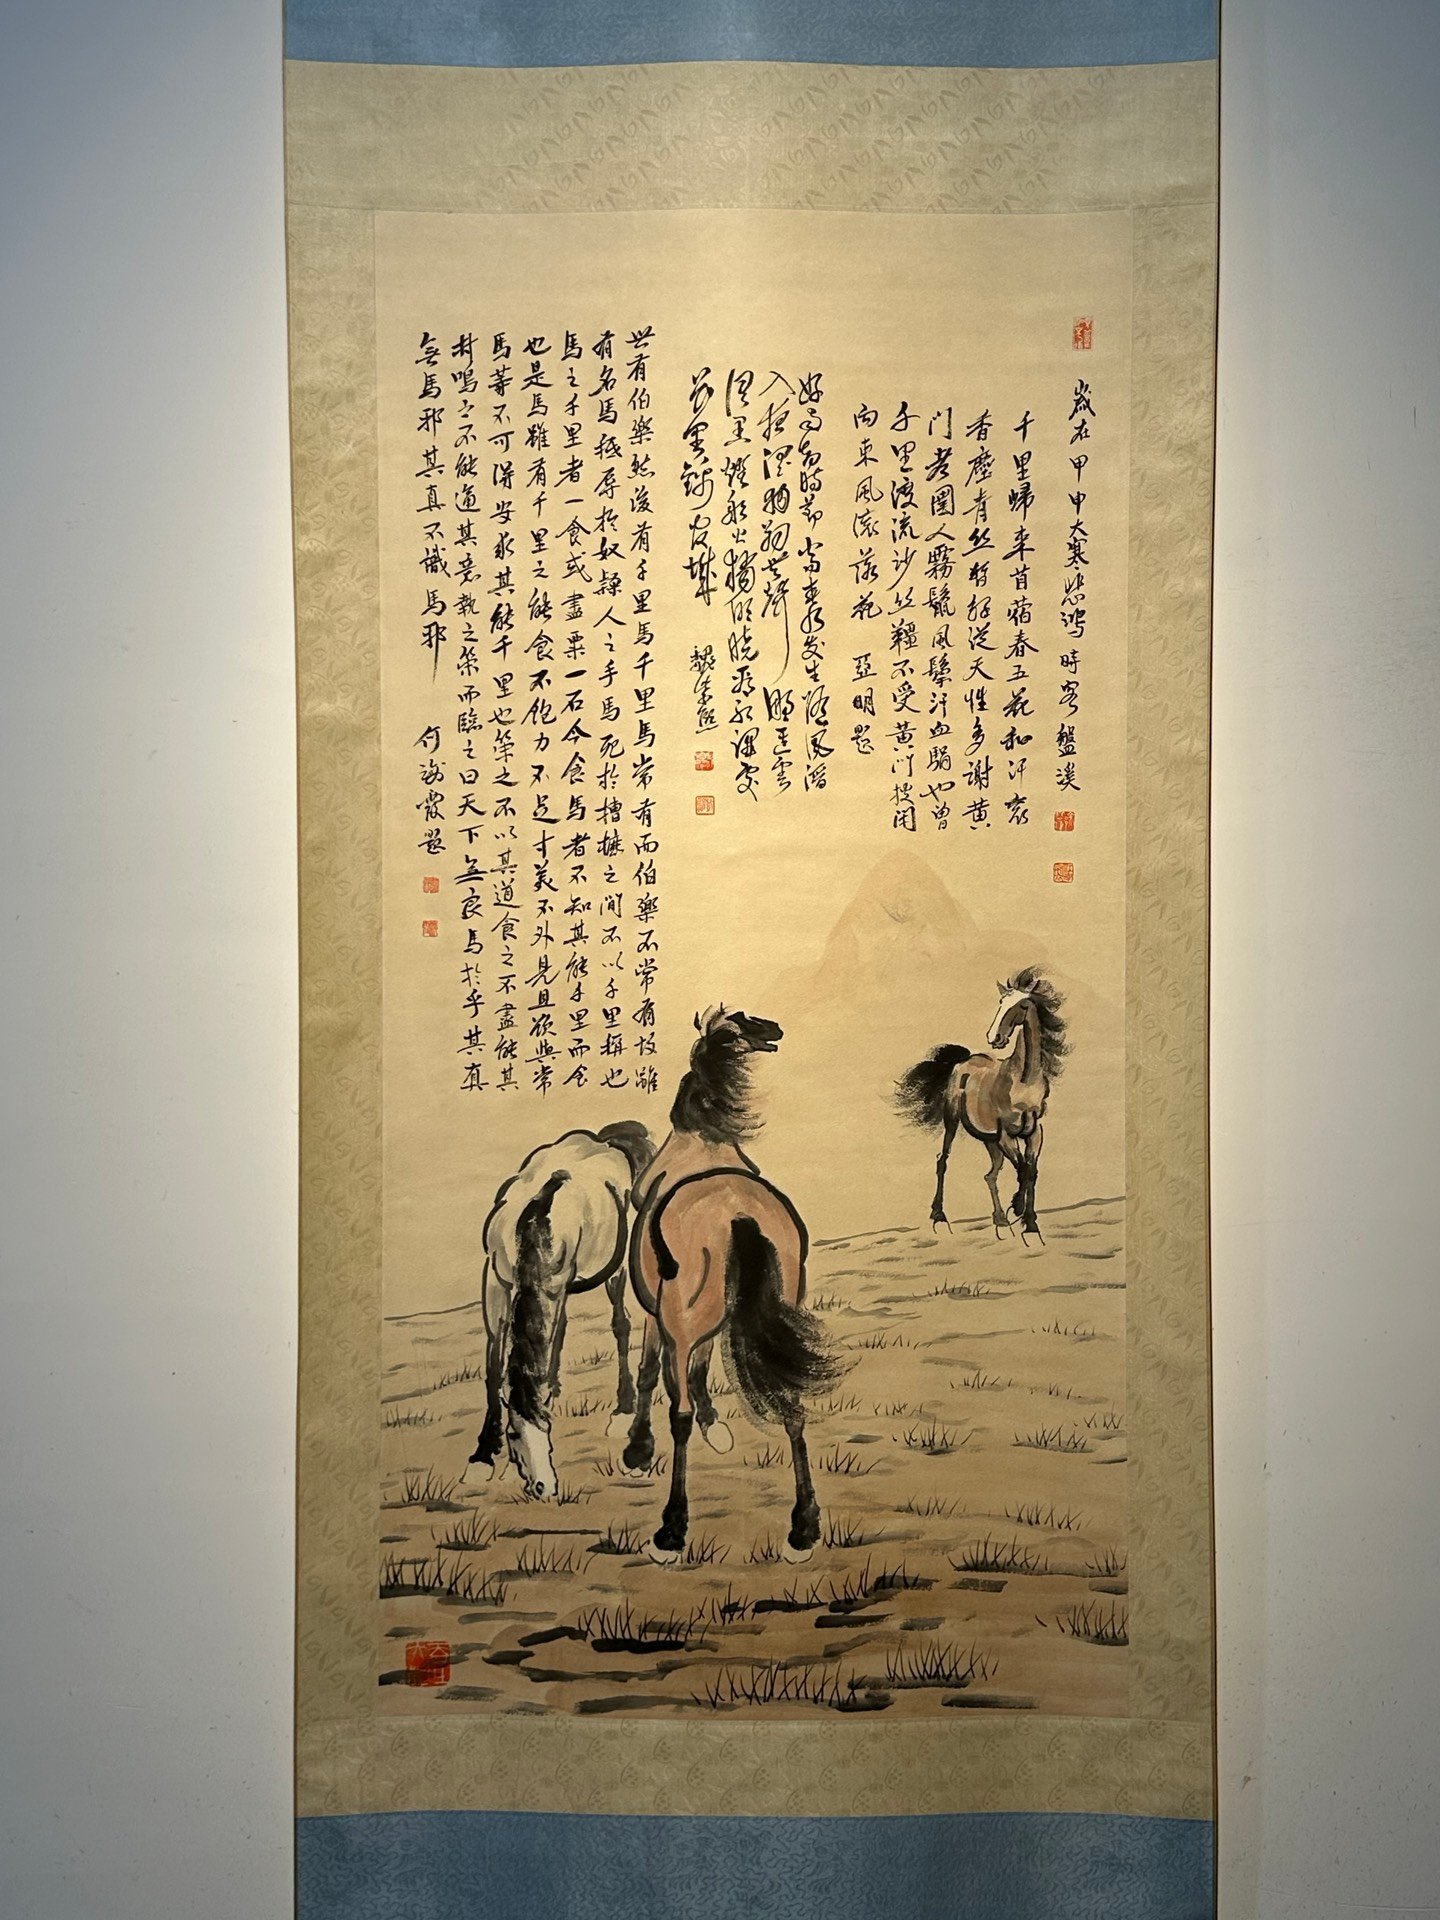 歲在甲申大寒悲鴻時客盤溪
千里歸來苜蓿春五花和汗衮
香塵青丝羇絡从天性多謝黄
门老圉人霧鬣風鬃汗血駒也曾
千里渡流沙丝韁不受黄门
向東風滚落花 亞明題
好雨知時節當春乃发生随風潜
入夜潤物細無聲野徑雲
俱黑江船火獨明晓看红湿處
花重錦官城
世有伯樂然後有千里馬千里馬常有而伯樂不常有故雖
有名馬秪辱於奴隸人之手馬死於槽櫪之間不以千里稱也
馬之千里者一食或盡粟一石今食馬者不知其能千里而食
也是馬雖有千里之能食不飽力不足才美不外見且欲與常
馬等不可得安求其能千里也策之不以其道食之不盡能其
材鳴之不能通其意執之策而臨之曰天下無良馬於乎其真
無馬邪其真不識馬邪 何海霞題